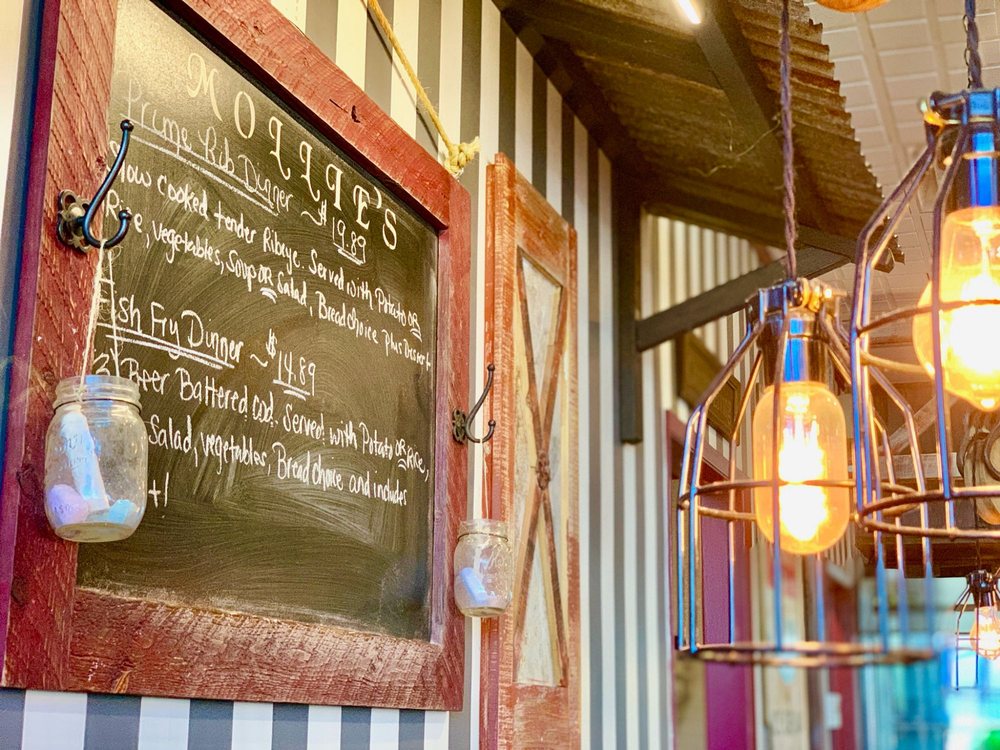 MOLLIE'S
Prime Rib Dinner ~ $19.89
Slow cooked tender Ribeye. Served with Potato OR
Rice, Vegetables, Soup OR Salad, Bread choice Plus Dessert
Fish Fry Dinner ~ $14.89
Beer Battered Cod. Served with Potato OR RICE,
Salad, vegetables, Bread choice and includes